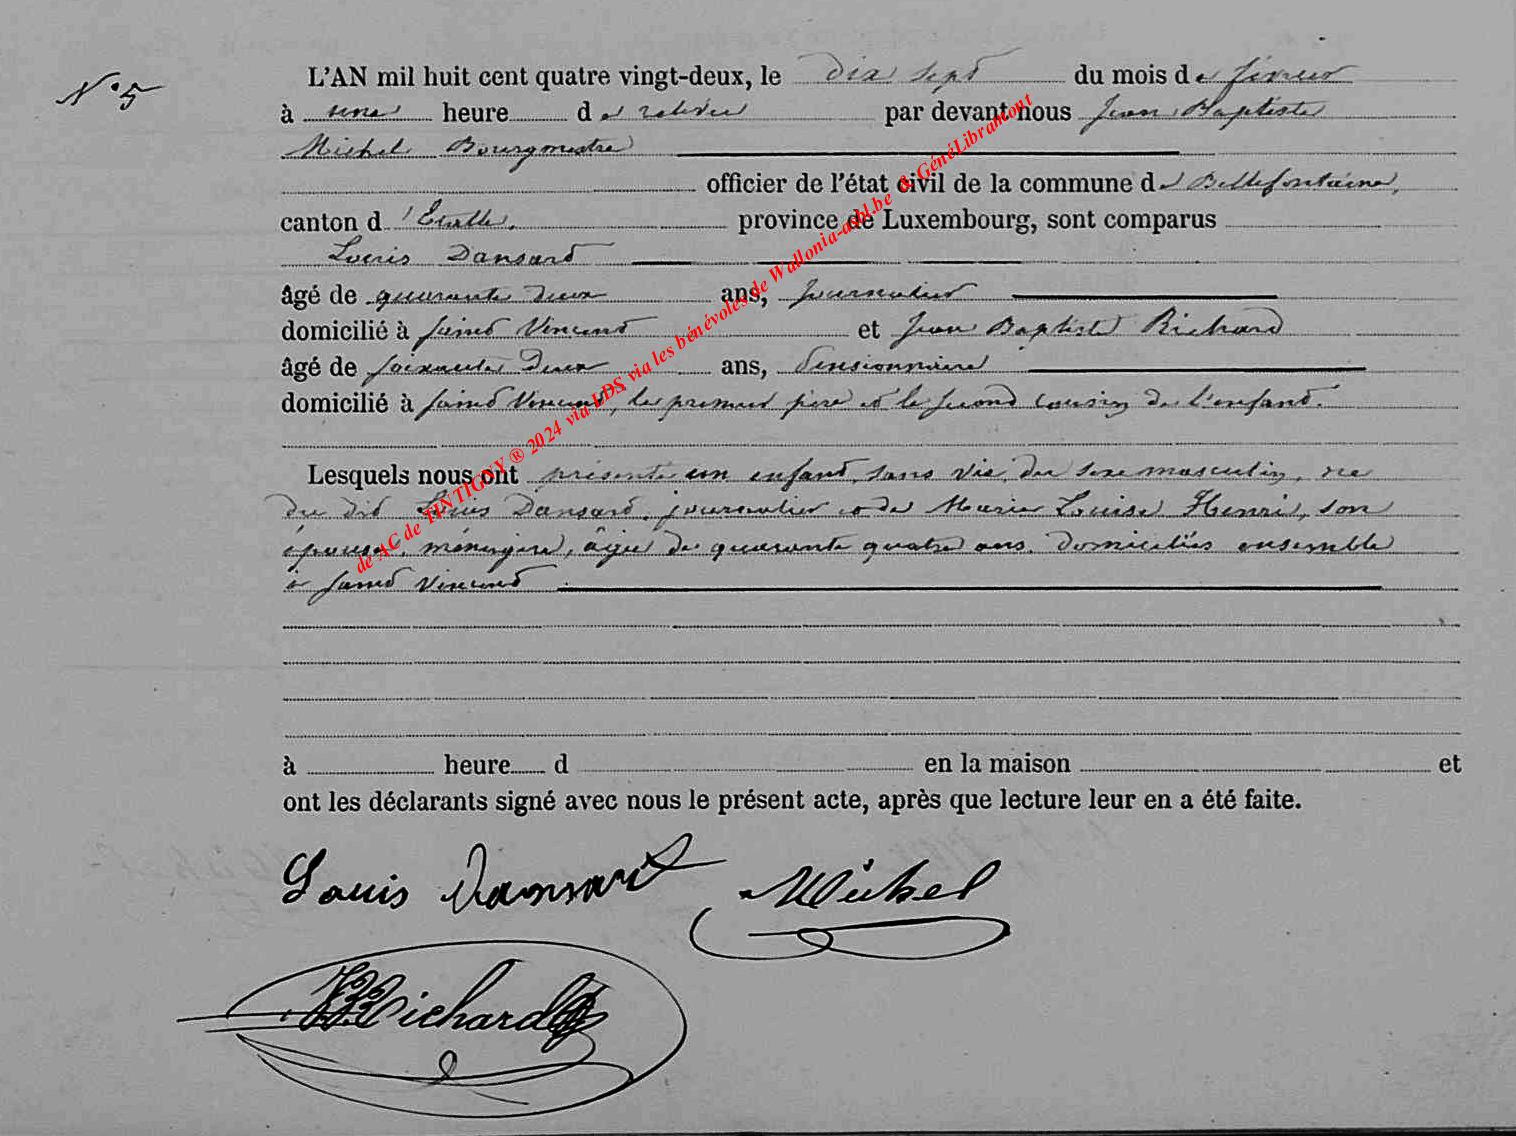 N° 5
L'AN mil huit cent quatre vingt-deux, le dix sept du mois de février
à une heure de relevée par devant nous Jean Baptiste
Michel Bourgmestre
officier de l'état civil de la commune de Bellefontaine,
canton d'Etalle, province de Luxembourg, sont comparus
Louis Dansard
âgé de quarante deux ans, journalier
domicilié à Saint Vincent et Jean Baptiste Richard
âgé de soixante deux ans, Pensionnaire
domicilié à Saint Vincent, le premier père et le second cousin de l'enfant.
Lesquels nous ont présenté un enfant sans vie, du sexe masculin, né
du dit Louis Dansard, journalier et de Marie Louise Henri, son
épouse, ménagère, âgée de quarante quatre ans. domiciliés ensemble
à Saint Vincent
à heure d en la maison et
ont les déclarants signé avec nous le présent acte, après que lecture leur en a été faite.
Louis Dansart Michel
JBRichard
de AC de TINTIGNY ® 2024 via LDS via les bénévoles de Wallonia-asbl.be & GénéLibramont